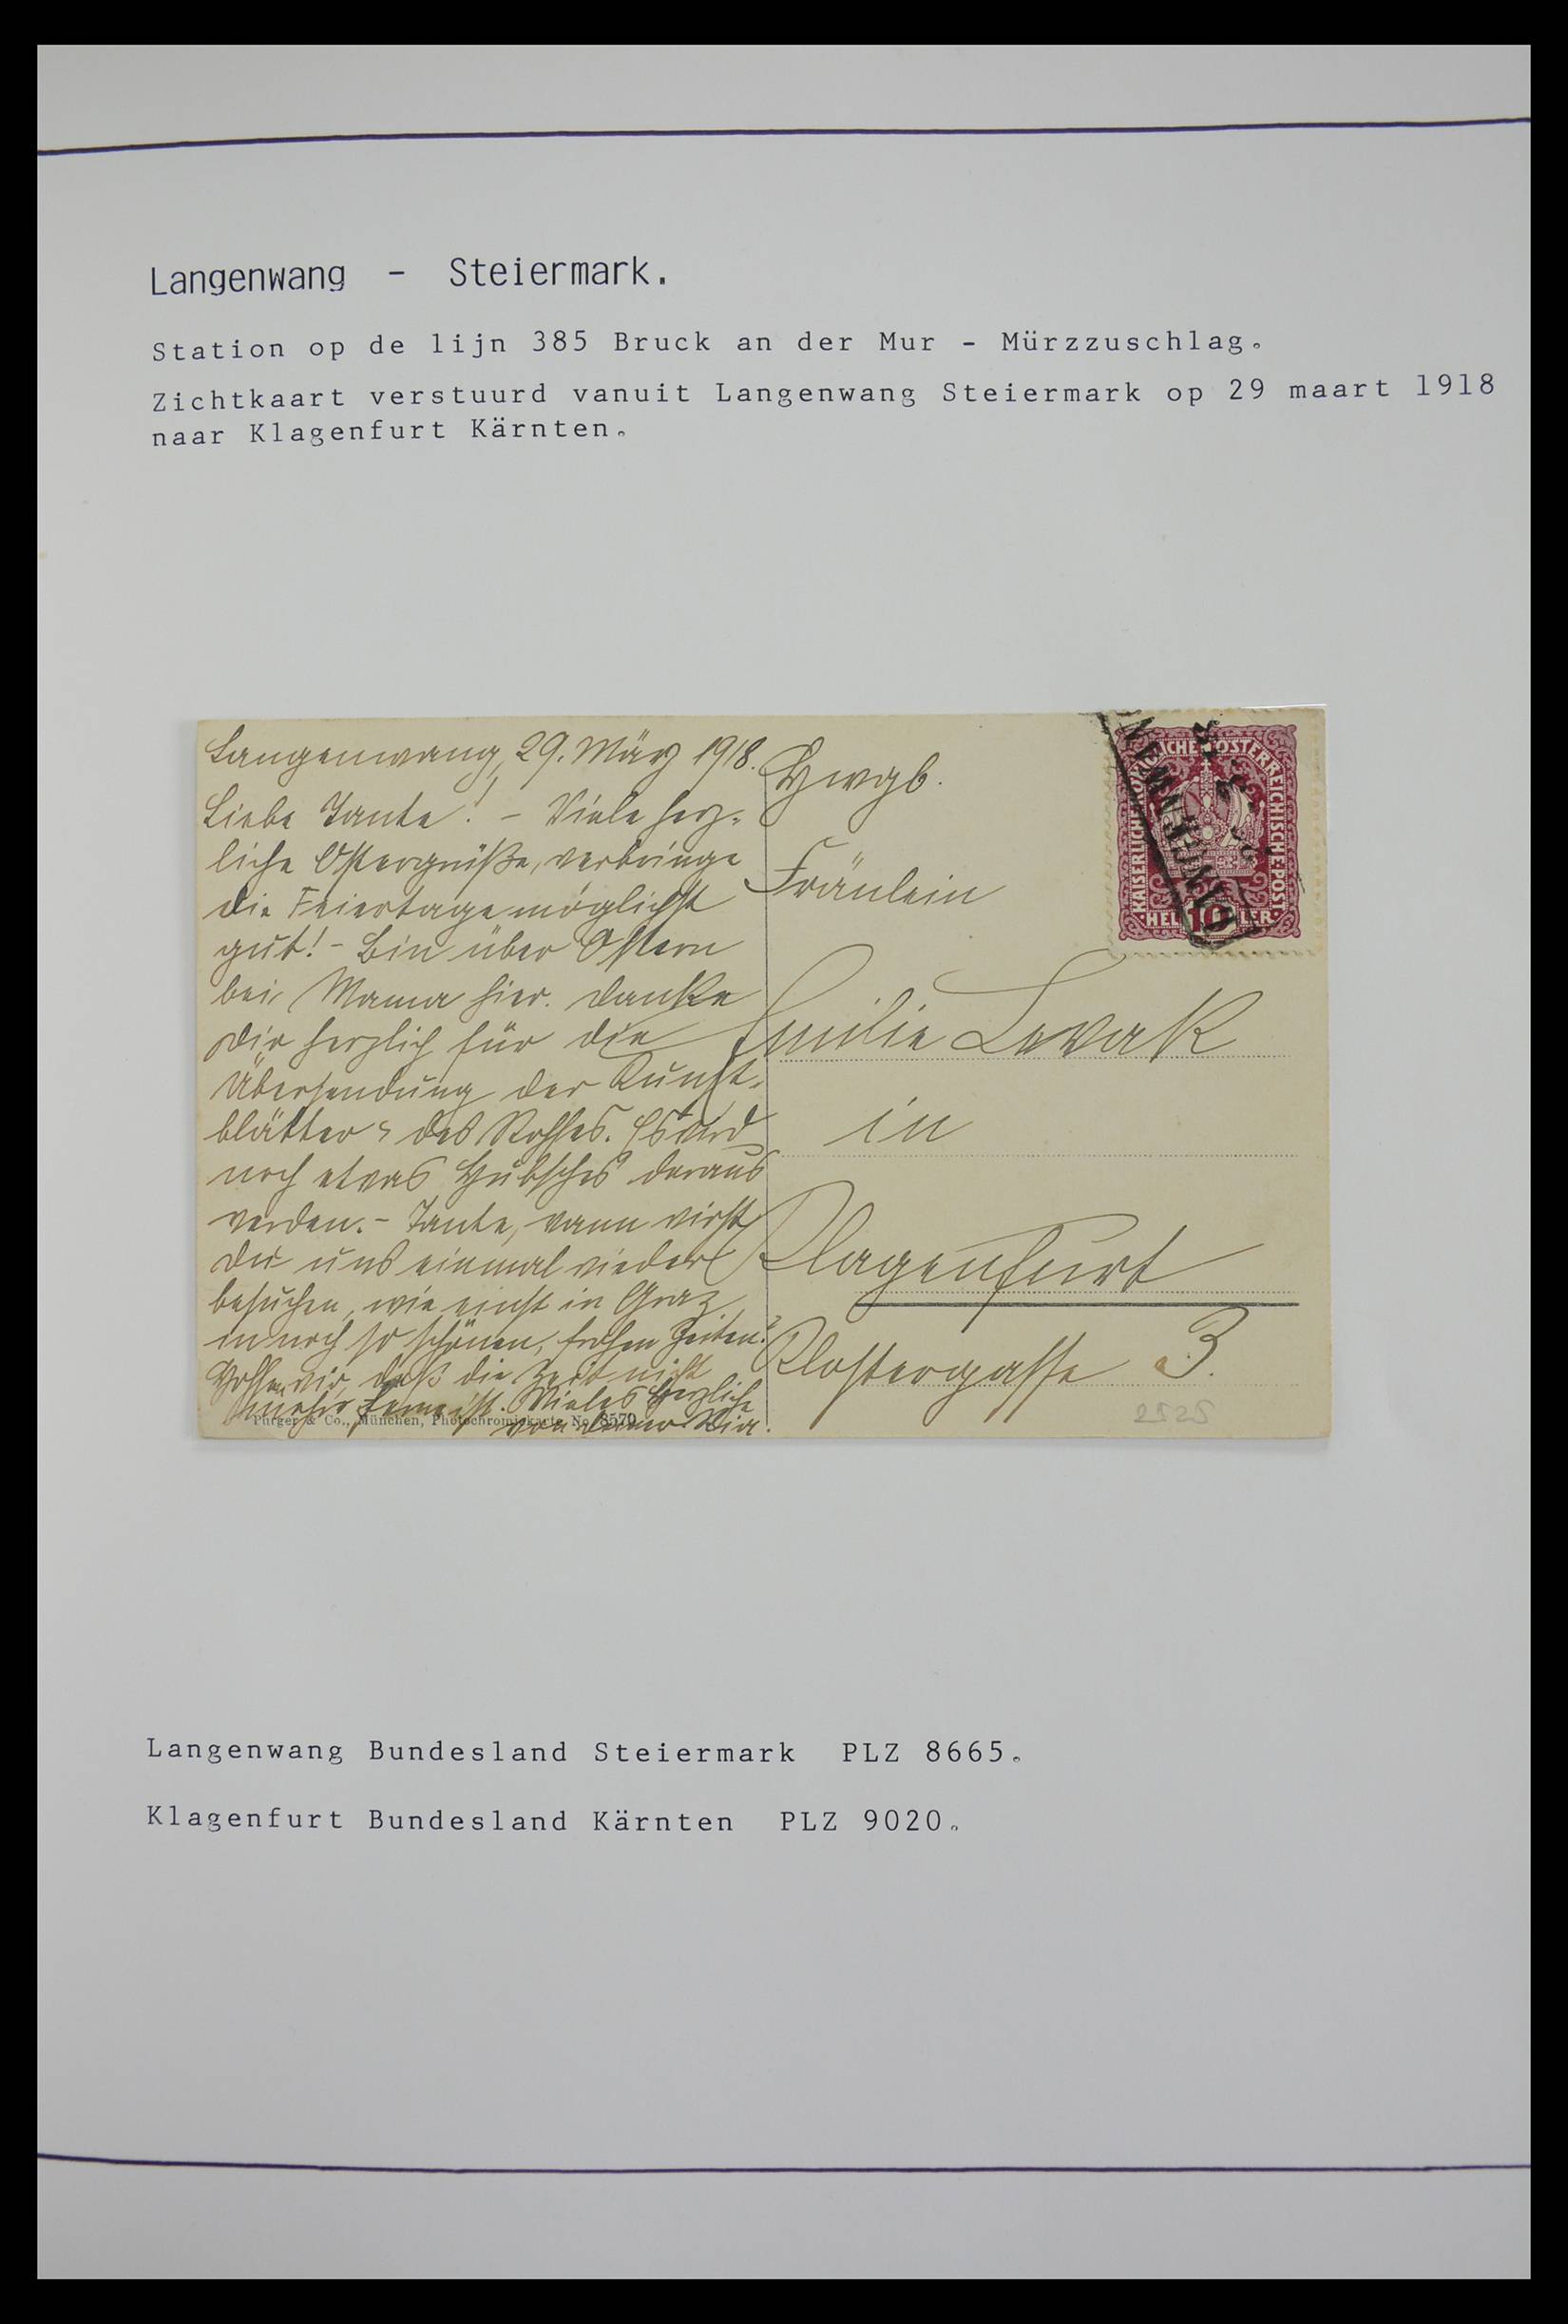 Langenwang - Steiermark.
Station op de lijn 385 Bruck an der Mur - Mürzzuschlag.
Zichtkaart verstuurd vanuit Langenwang Steiermark op 29 maart 1918
naar Klagenfurt Kärnten.
Langenwang, 29. März 1918.
Liebe Tante! - Viele herz-
liche Ostergrüße, verbringe
die Feiertage möglichst
gut! - Bin über Ostern
bei Mama hier. Danke
Dir herzlich für die
Übersendung der Kunst-
blätter des
noch etwas Hübsches daraus
werden. - Tante, wann wirst
du uns einmal wieder
besuchen, wie einst in Graz
in noch so schönen, frohen Zeiten?
Hoffen wir, daß die Zeit nicht
mehr ferne ist. Vieles Herzliche
von Deiner
Purger & Co., München, Photochromiekarte No. 8579
Hwgb.
Fräulein
Emilie Lewak
in
Klagenfurt
Klostergasse 3.
2525
KAISERLICHE KÖNIGLICHE ÖSTERREICHISCHE POST
HELLER 10
Langenwang Bundesland Steiermark PLZ 8665.
Klagenfurt Bundesland Kärnten PLZ 9020.